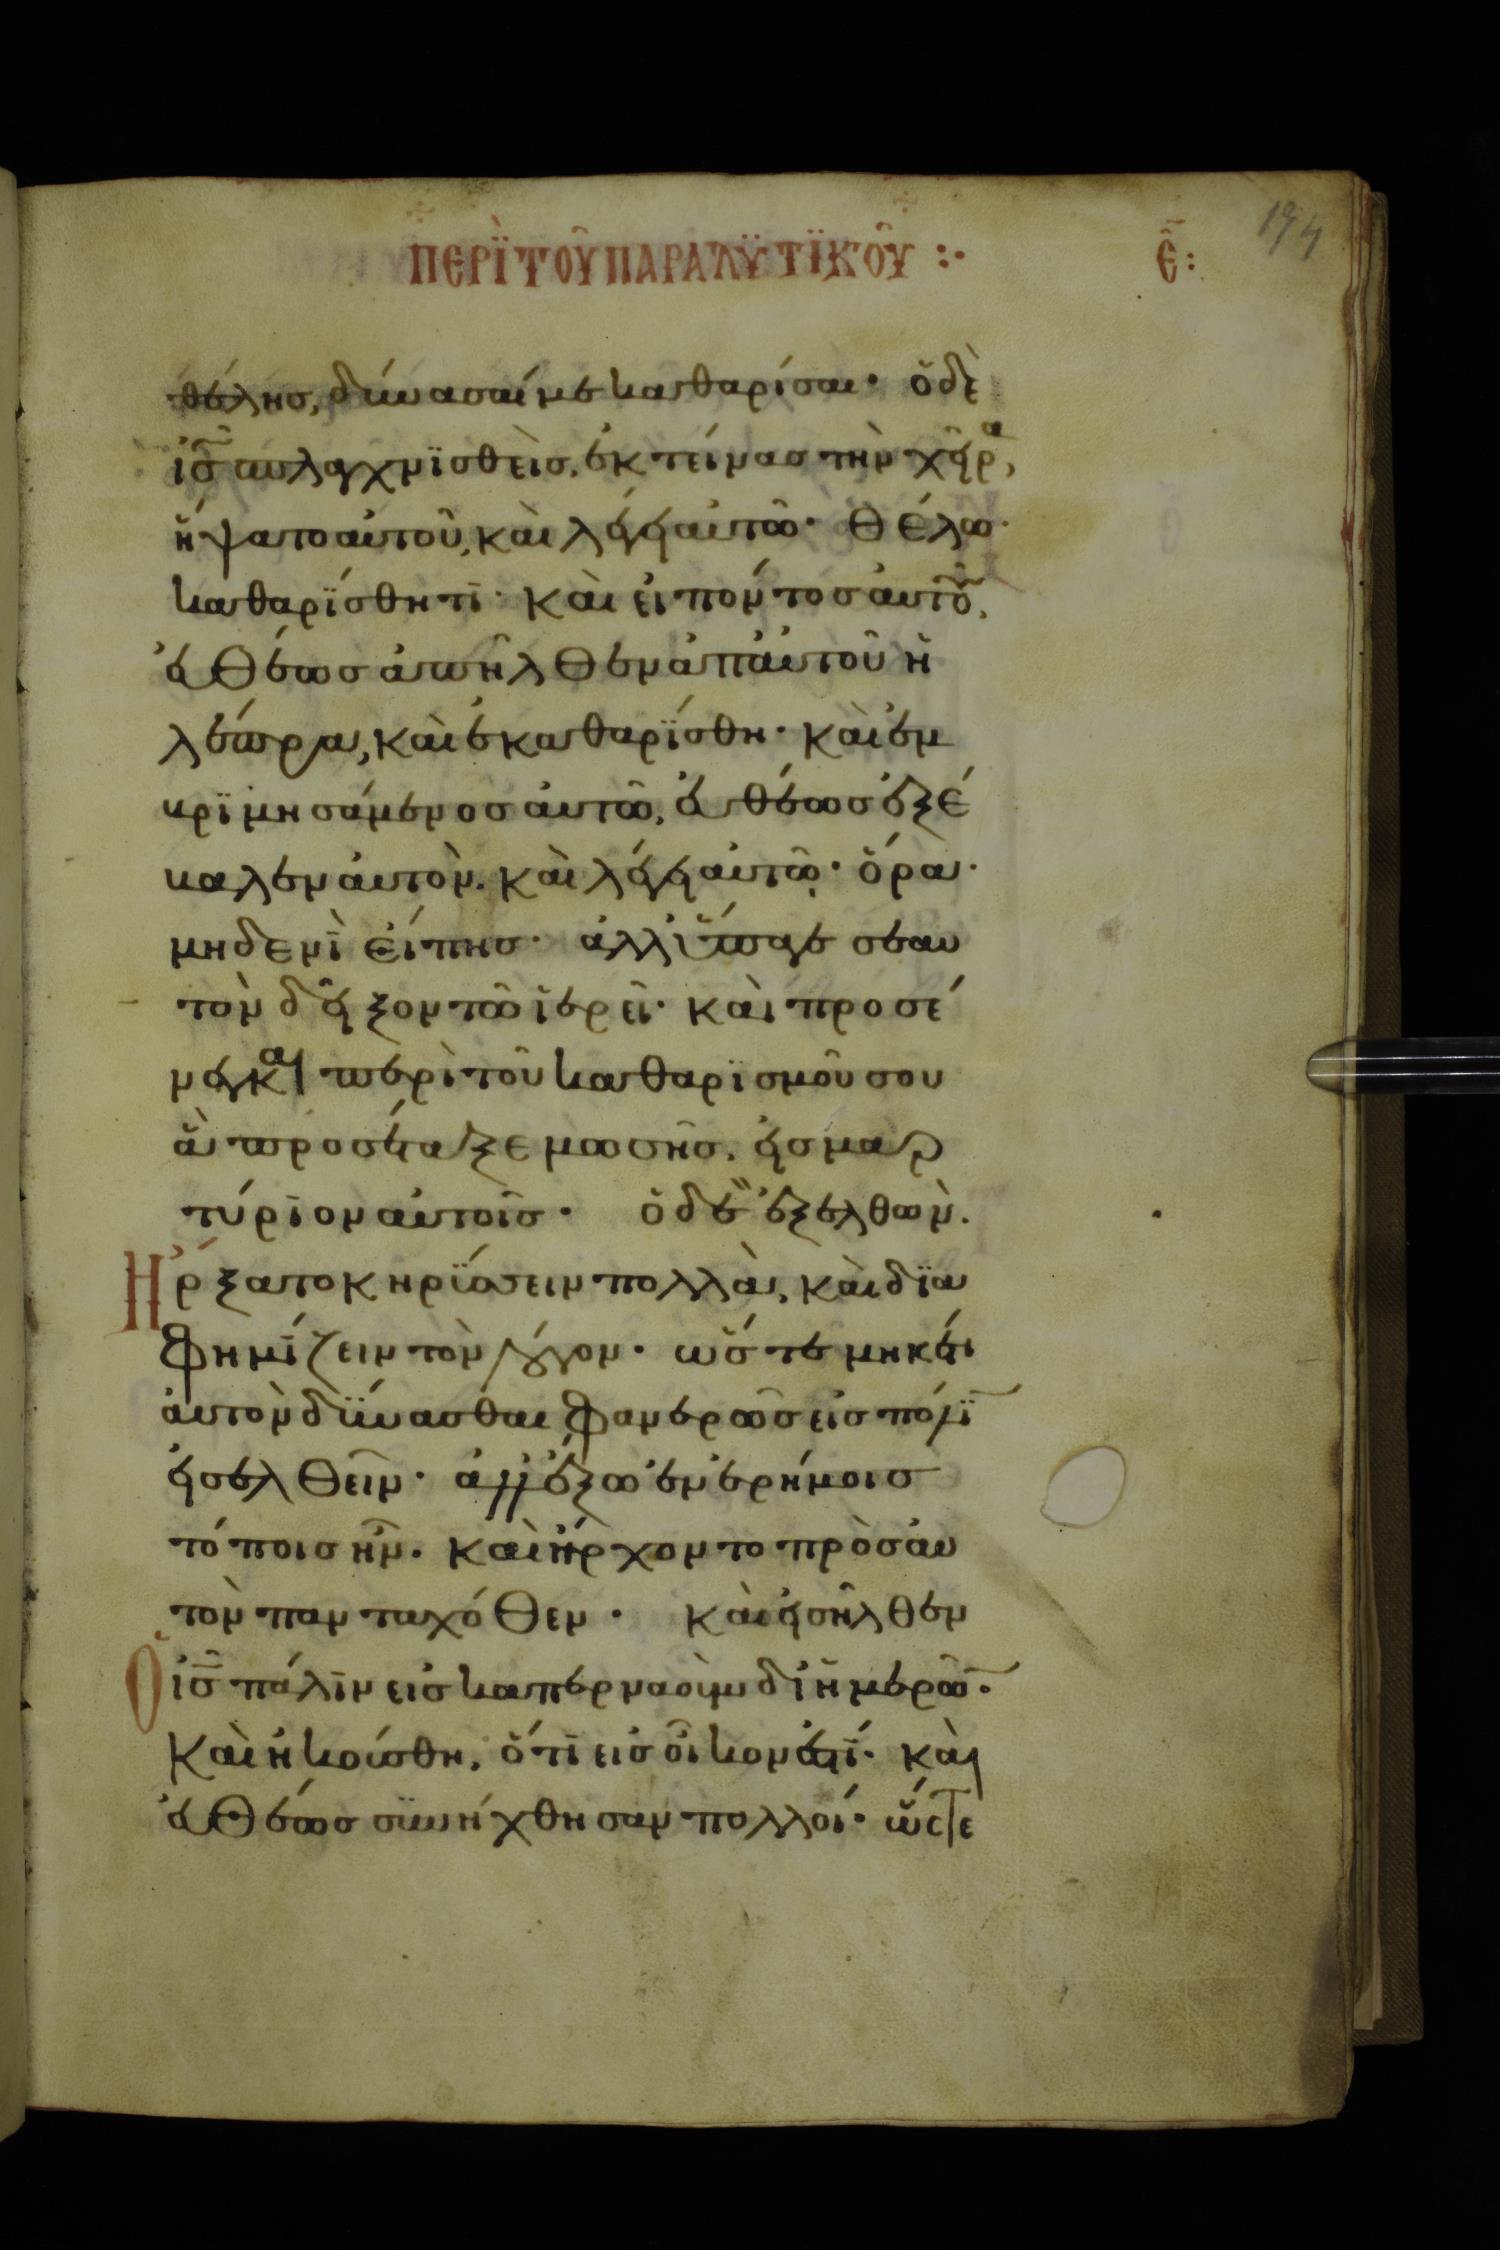 ΠΕΡΪ ΤΟΥ ΠΑΡΑΛΫΤΪΚΟΥ :· Ε̄:
θέλησ, δύνασαί με καθαρίσαι· ὁ δὲ
ἰ̅σ̅ σπλαγχνϊσθεὶσ, ἐκτείνασ τὴν χεῖρα,
ἥψατο αὐτοῦ, καὶ λέγει αὐτῶ· Θέλω·
καθαρϊσθητϊ· καὶ εἰπόντοσ αὐτοῦ,
εὐθέωσ ἀπῆλθεν ἀπ αὐτοῦ ἡ
λέπρα, καὶ ἐκαθαρϊσθη· καὶ ἐμ
βρϊμησάμενοσ αὐτῶ, εὐθέωσ ἐξέ
βαλεν αὐτὸν. καὶ λέγει αὐτῶ· ὅρα·
μηδενὶ εἴπησ· ἀλλ ὕπαγε σεαυ
τὸν δεῖξον τῶ ἱερεῖ· καὶ προσέ
νεγκαι περὶ τοῦ καθαρϊσμοῦ σου
ἃ προσέταξε μωσῆσ, εἰσ μαρ
τύρϊον αὐτοῖσ· ὁ δὲ ἐξελθὼν.
Ἤρξατο κηρϋσσειν πολλὰ, καὶ δϊα
φημίζειν τὸν λόγον· ὥστε μηκέτι
αὐτὸν δύνασθαι φανερῶσ εἰσ πόλϊν
εἰσελθεῖν· ἀλλ ἔξω ἐν ἐρήμοισ
τόποισ ἦν. καὶ ἤρχοντο πρὸσ αὐ
τὸν πανταχόθεν· καὶ εἰσῆλθεν
Ὁ ἰ̅σ̅ πάλϊν εἰσ καπερναοὺμ δϊ ἡμερῶν.
Καὶ ἠκούσθη, ὅτϊ εἰσ οἶκον ἐστί· καὶ
εὐθέωσ σϋνήχθησαν πολλοί· ὥστε